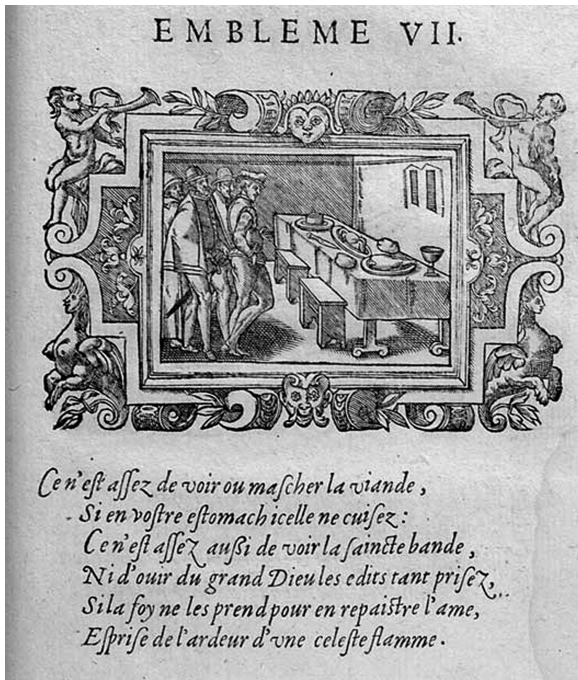 EMBLEME VII.
Ce n'eſt aſſez de voir ou maſcher la viande,
Si en voſtre eſtomach icelle ne cuiſez:
Ce n'eſt aſſez auſſi de voir la ſaincte bande,
Ni d'ouir du grand Dieu les edits tant priſez,
Si la foy ne les prend pour en repaiſtre l'ame,
Eſpriſe de l'ardeur d'vne celeſte flamme.